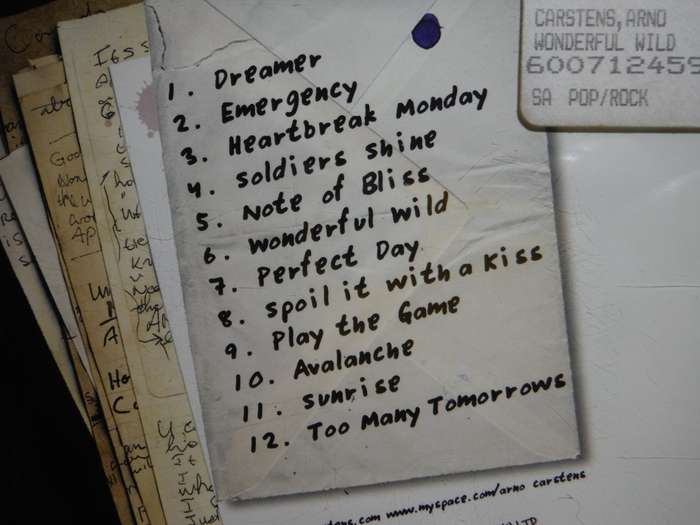 CARSTENS,ARNO
WONDERFUL WILD
600712459
SA POP/ROCK
1. Dreamer
2. Emergency
3. Heartbreak Monday
4. soldiers shine
5. Note of Bliss
6. wonderful wild
7. Perfect Day
8. spoil it with a kiss
9. Play the Game
10. Avalanche
11. sunrise
12. Too Many Tomorrows
www.myspace.com/arno carstens